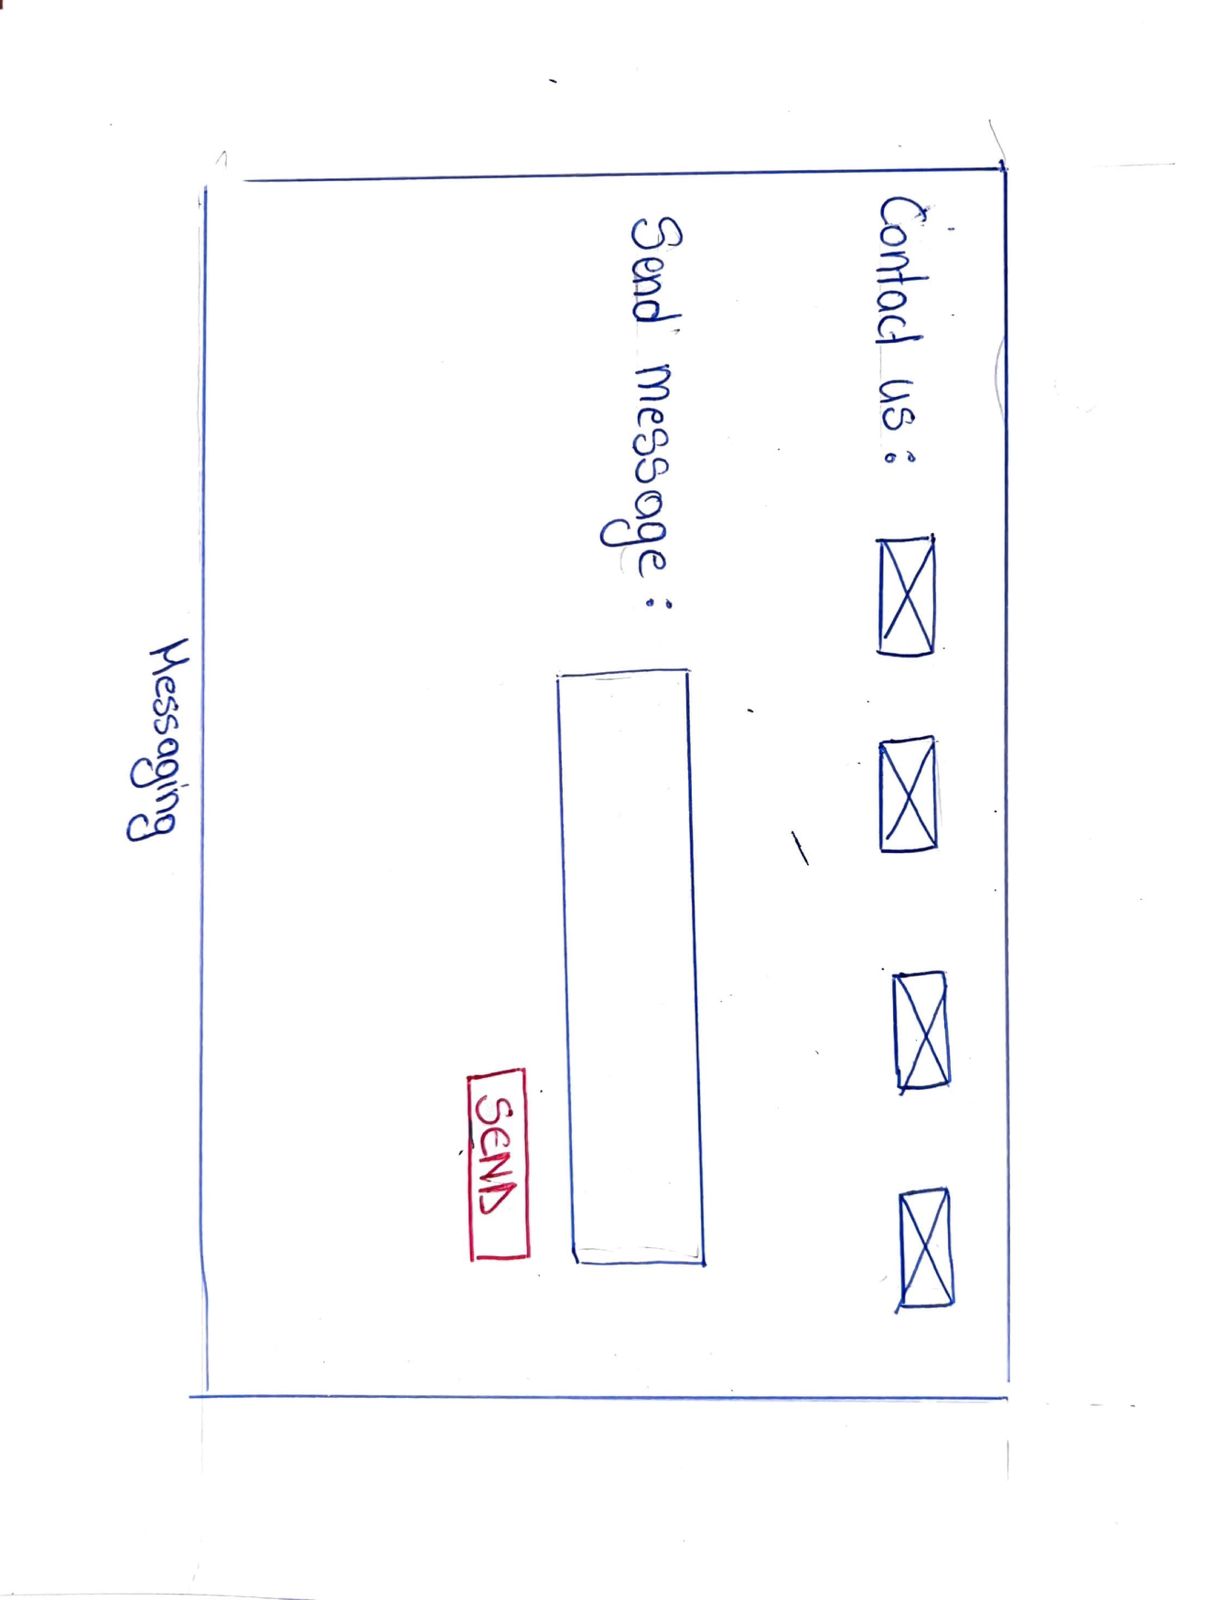 Contact us :
Send message :
SEND
Messaging